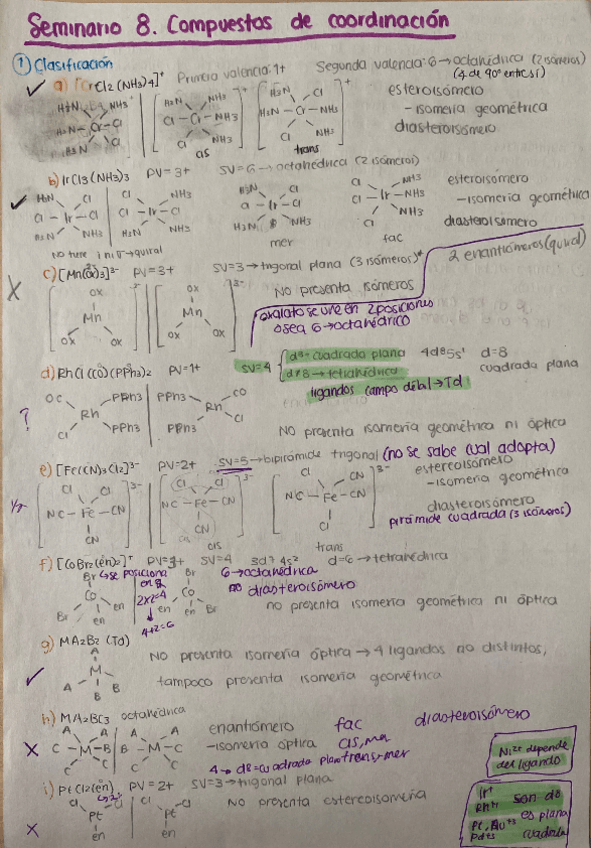 Seminario 8. Compuestos de coordinación
① Clasificación
a) [CrCl2(NH3)4]+ Primera valencia: 1+ Segunda valencia: 6 → octahédrica (2 isómeros)
(4 de 90° entre sí)
H3N NH3 H3N NH3 H3N NH3
H3N Cr Cl Cl Cr NH3 H3N Cr Cl
H3N Cl Cl NH3 Cl NH3
cis trans
esteroisómero
- isomería geométrica
diasteroisómero
b) IrCl3(NH3)3 PV = 3+ SV = 6 → octahédrica (2 isómeros)
H3N Cl Cl NH3 H3N Cl Cl NH3
Cl - Ir - Cl Cl - Ir - Cl Cl - Ir - Cl Cl - Ir - NH3
H3N NH3 NH3 Cl NH3
mer fac
no tiene → quiral
esteroisómero
- isomería geométrica
diasteroisómero
c) [Mn(ox)3]3- PV = 3+ SV = 3 → trigonal plana (3 isómeros)*
2 enantiómeros (quiral)
ox ox 3-
Mn Mn
ox ox ox ox
No presenta isómeros
oxalato se une en 2 posiciones
o sea 6 → octahédrico
d) RhCl(CO)(PPh3)2 PV = 1+ SV = 4 d8 - cuadrada plana 4d8 5s1 d = 8
d≠8 → tetrahédrica cuadrada plana
ligandos campo débil → Td
OC PPh3 PPh3 CO
Rh Rh
Cl PPh3 PPh3 Cl
No presenta isomería geométrica ni óptica
e) [Fe(CN)3Cl2]3- PV = 2+ SV = 5 → bipirámide trigonal (no se sabe cual adopta)
Cl Cl 3- Cl Cl 3- Cl CN 3-
NC - Fe - CN NC - Fe - CN NC - Fe - CN
CN CN Cl
cis trans
estereoisómero
- isomería geométrica
diasteroisómero
pirámide cuadrada (3 isómeros)
f) [CoBr2(en)2]+ PV = 3+ SV = 4 3d7 4s2 d = 6 → tetrahédrica
Br → se posiciona en 2 Br 6 → octahédrica
Co 2x2=4 Co no diasteroisómero
Br en en en Br
en 4+2=6
no presenta isomería geométrica ni óptica
g) MA2B2 (Td)
A
M
A B B
No presenta isomería óptica → 4 ligandos no distintos,
tampoco presenta isomería geométrica
h) MA2BC3 octahédrica
A A A A
C - M - B B - M - C
C C C C
enantiómero fac diasteroisómero
- isomería óptica cis, mer
trans-mer
4 → d8 = cuadrado plano
Ni2+ depende
del ligando
i) PtCl2(en) PV = 2+ SV = 3 → trigonal plana
Cl Cl Cl Cl
Pt Pt
en en
No presenta estereoisomería
Ir+
Rh+ son d8
Pt, Au3+ es plana
Pd2+ cuadrada